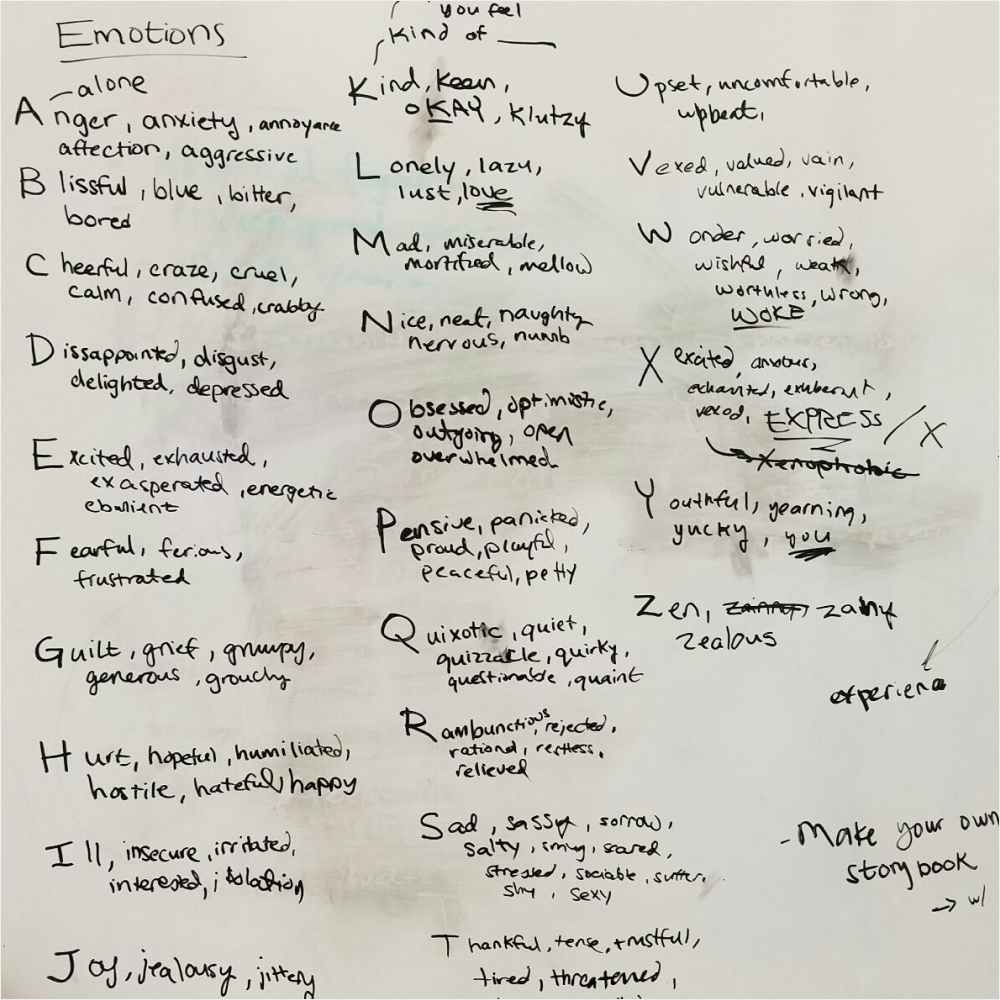 Emotions
alone
Anger, anxiety, annoyance
affection, aggressive
Blissful, blue, bitter,
bored
Cheerful, craze, cruel,
calm, confused, crabby
Dissappointed, disgust,
delighted, depressed
Excited, exhausted,
exasperated, energetic
ebulient
Fearful, ferious,
frustrated
Guilt, grief, grumpy,
generous, grouchy
Hurt, hopeful, humiliated,
hostile, hateful, happy
Ill, insecure, irritated,
interested, isolation
Joy, jealousy, jittery
you feel
kind of ____
Kind, keen,
OKAY, klutzy
Lonely, lazy,
lust, love
Mad, miserable,
mortified, mellow
Nice, neat, naughty
nervous, numb
Obsessed, optimistic,
outgoing, open
overwhelmed
Pensive, panicked,
proud, playful,
peaceful, petty
Quixotic, quiet,
quizzacle, quirky,
questionable, quaint
Rambunctious, rejected,
rational, restless,
relieved
Sad, sassy, sorrow,
salty, smug, scared,
stressed, sociable, suffer,
shy, sexy
Thankful, tense, trustful,
tired, threatened,
Upset, uncomfortable,
upbeat,
Vexed, valued, vain,
vulnerable, vigilant
Wonder, worried,
wishful, weak,
worthless, wrong,
WOKE
X excited,
exhausted, exuberent,
vexed, EXPRESS / X
Xenophobic
Youthful, yearning,
yucky, you
Zen, zany
zealous
experience
- Make your own
storybook
→ w/